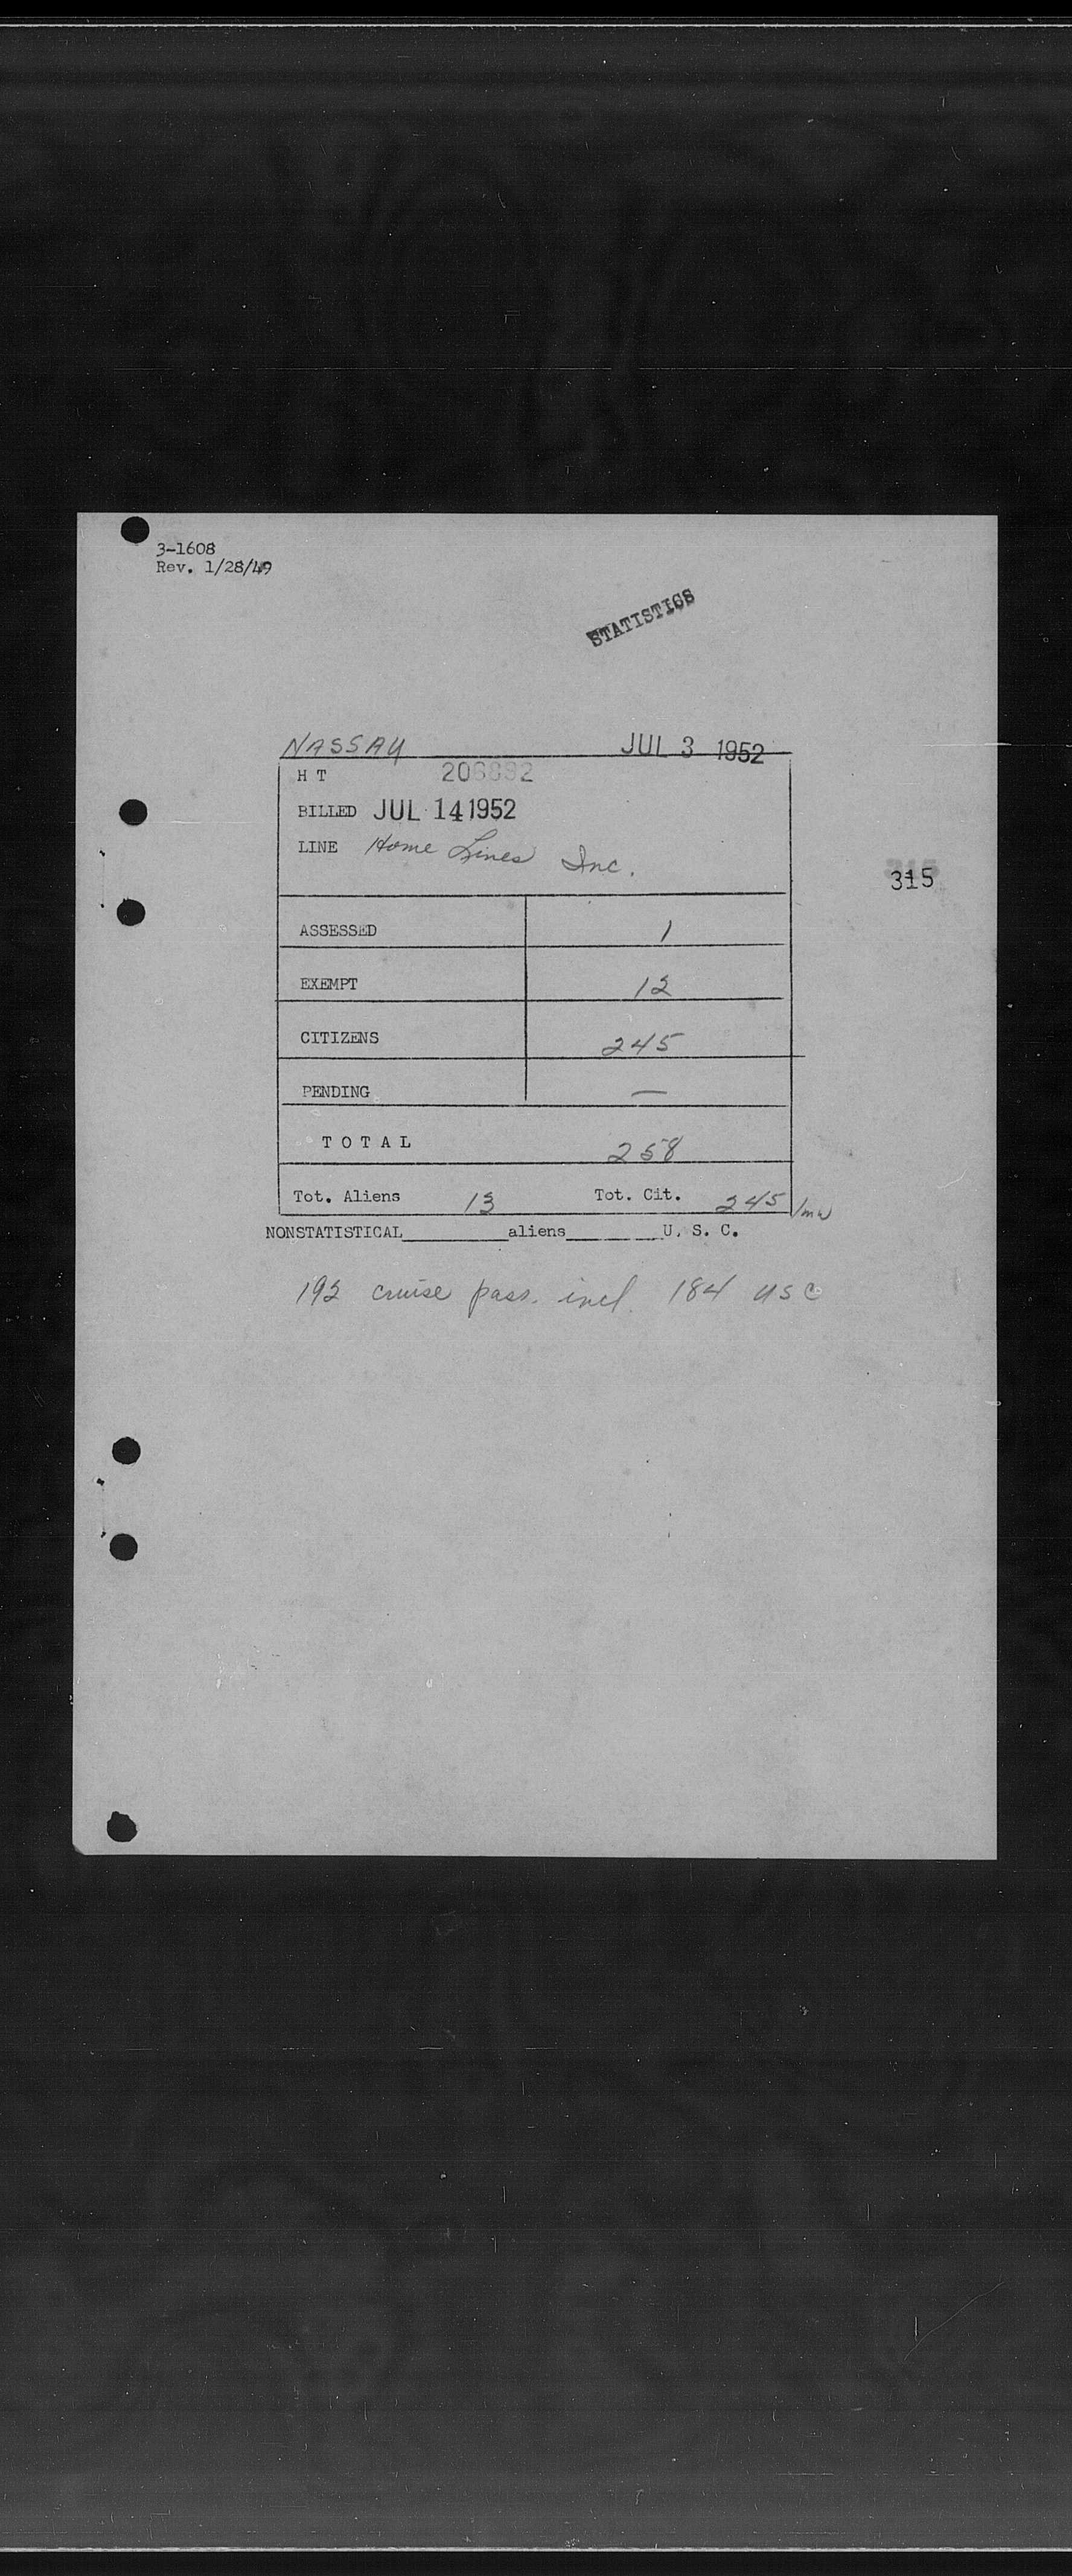 3-1608
Rev. 1/28/49
STATISTICS
NASSAU JUL 3 1952
H T
BILLED JUL 14 1952
LINE Home Lines Inc.
315
ASSESSED 1
EXEMPT 12
CITIZENS 245
PENDING —
T O T A L 258
Tot. Aliens 13 Tot. Cit. 245
NONSTATISTICAL________aliens________U. S. C.
192 cruise pass. incl. 184 USC